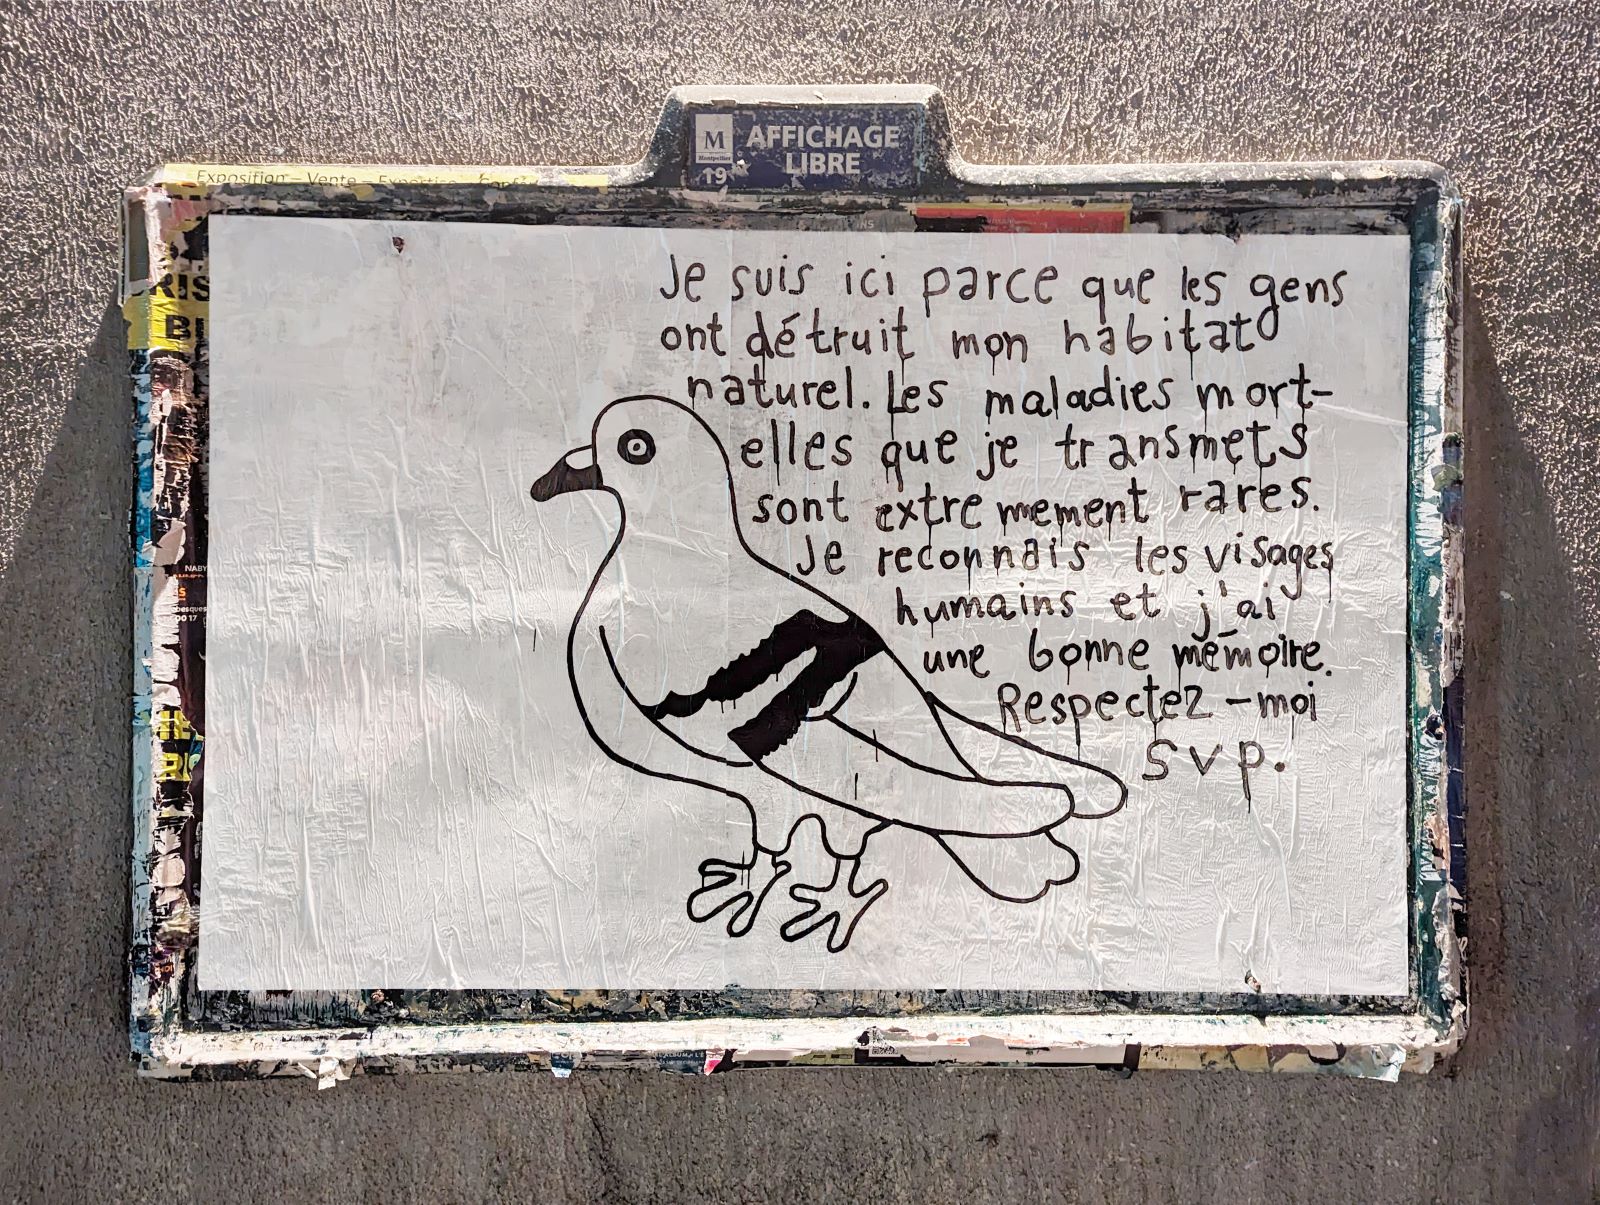 M AFFICHAGE
Montpellier LIBRE
19
Exposition – Vente –
RIS
NABY
Je suis ici parce que les gens
ont détruit mon habitat
naturel. Les maladies mort-
elles que je transmets
sont extremement rares.
Je reconnais les visages
humains et j'ai
une bonne mémoire.
Respectez-moi
svp.